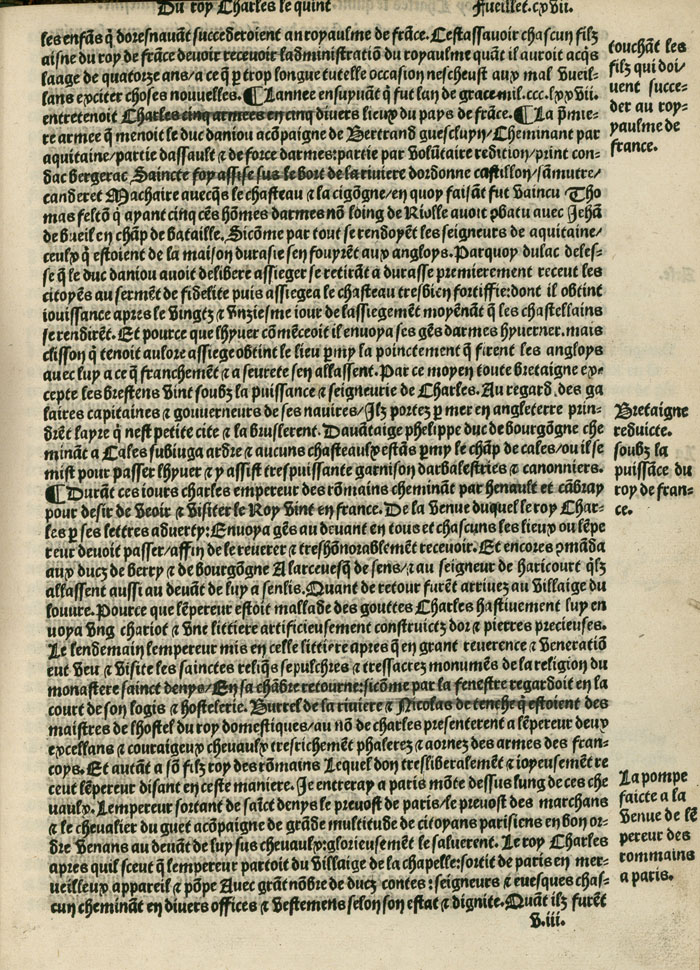 Du roy Charles le quint
Fueillet.cxvii.
les enfãs q̃ doresnauãt succederoient au royaulme de frãce. Cestassauoir chascun filz
aisne du roy de frãce deuoir recevoir ladministratiõ du royaulme quãt il auroit acq̃s
laage de quatorze ans/a ce q̃ p trop longue tutelle occasion nescheust aux mal vueil-
lans exciter choses nouuelles. ¶Lannee ensuyuãt q̃ fut lan de grace mil.ccc.lxxvii.
entretenoit Charles cinq armees en cinq diuers lieux du pays de frãce. ¶La p̃mie-
re armee q̃ menoit le duc daniou acõpaigne de Bertrand guescluyn/Cheminant par
aquitaine/partie dassault ⁊ de force darmes:partie par volũtaire redition/print con-
dac bergerac Saincte foy assise sus le bort de la riuiere dordonne castillon/sãmutre/
canderet Machaire auecq̃s le chasteau ⁊ la cigõgne/en quoy faisãt fut vaincu Tho
mas feltõ q̃ ayant cinq cẽs hõmes darmes nõ loing de Riolle auoit ꝯbatu auec Jehã
de bueil en chãp de bataille. Sicõme par tout se rendoyẽt les seigneurs de aquitaine/
ceulx q̃ estoient de la maison durasie sen fouyrẽt aux angloys. Parquoy dulac deles-
se q̃ le duc daniou auoit delibere assieger se retirãt a durasse premierement receut les
citoyẽs au sermẽt de fidelite puis assiegea le chasteau tresbien fortiffie:dont il obtint
iouissance apres le vingtz ⁊ vnziesme iour de lassiegemẽt moyẽnãt q̃ les chastellains
se rendirẽt. Et pource que lhyuer cõmẽceoit il enuoya ses gẽs darmes hyuerner.mais
clisson q̃ tenoit aulore assiege obtint le lieu pmy la poinctement q̃ firent les angloys
auec luy a ce q̃ franchemẽt ⁊ a seurete sen allassent. Par ce moyen toute bretaigne ex-
cepte les brestens vint soubz la puissance ⁊ seigneurie de Charles. Au regard des ga
laires capitaines ⁊ gouuerneurs de ses nauires/Jlz portez p mer en angleterre prin-
drẽt layre q̃ nest petite cite ⁊ la bruslerent. Dauãtaige phelippe duc de bourgõgne che
minãt a Cales subiuga ardre ⁊ aucuns chasteaulx estãs pmy le chãp de cales/ou il se
mist pour passer lhyuer ⁊ y assist trespuissante garnison darbalestries ⁊ canonniers.
¶Durãt ces iours charles empereur des rõmains cheminãt par henault et cãbray
pour desir de veoir ⁊ visiter le Roy vint en france. De la venue duquel le roy Char-
les p ses lettres aduerty:Enuoya gẽs au deuant en tous et chascuns les lieux ou lẽpe
reur deuoit passer/affin de le reuerer ⁊ treshõnorablemẽt recevoir. Et encores ꝯmãda
aux ducz de berry ⁊ de bourgõgne A larceuesq̃ de sens/⁊ au seigneur de haricourt q̃lz
allassent aussi au deuãt de luy a senlis. Quant de retour furẽt arriuez au villaige du
louure. Pource que lẽpereur estoit mallade des gouttes Charles hastiuement luy en
uoya vng chariot ⁊ vne littiere artificieusement construictz dor ⁊ pierres precieuses.
Le lendemain lempereur mis en celle littiere apres q̃ en grant reuerence ⁊ veneratiõ
eut veu ⁊ visite les sainctes reliq̃s sepulchres ⁊ tressacrez monumẽs de la religion du
monastere sainct denys/En sa chãbre retourne:sicõme par la fenestre regardoit en la
court de son logis ⁊ hostelerie. Burrel de la riuiere ⁊ Nicolas de tenche q̃ estoient des
maistres de lhostel du roy domestiques/au nõ de charles presenterent a lẽpereur deux
excellans ⁊ couraigeux cheuaulx tresrichemẽt phalerez ⁊ aornez des armes des fran-
coys. Et autãt a sõ filz roy des rõmains Lequel don tresliberalemẽt ⁊ ioyeusemẽt re
ceut lẽpereur disant en ceste maniere. Je entreray a paris mõte dessus lung de ces che
uaulx. Lempereur sortant de saĩct denys le preuost de paris/le preuost des marchans
⁊ le chevalier du guet acõpaigne de grãde multitude de citoyans parisiens en bon or-
dre venans au deuãt de luy sus cheuaulx:glorieusemẽt le saluerent. Le roy Charles
apres quil sceut q̃ lempereur partoit du villaige de la chapelle:sortit de paris en mer-
ueilleux appareil ⁊ põpe Auec grãt nõbre de ducz contes:seigneurs ⁊ euesques chas-
cun cheminãt en diuers offices ⁊ vestemens selon son estat ⁊ dignite. Quãt ilz furẽt
v.iii.
touchãt les
filz qui doi/
uent succe-
der au roy-
yaulme de
france.
Bretaigne
reduicte.
soubz la
puissãce du
roy de fran-
ce.
La pompe
faicte a la
venue de lẽ
pereur des
rommains
a paris.